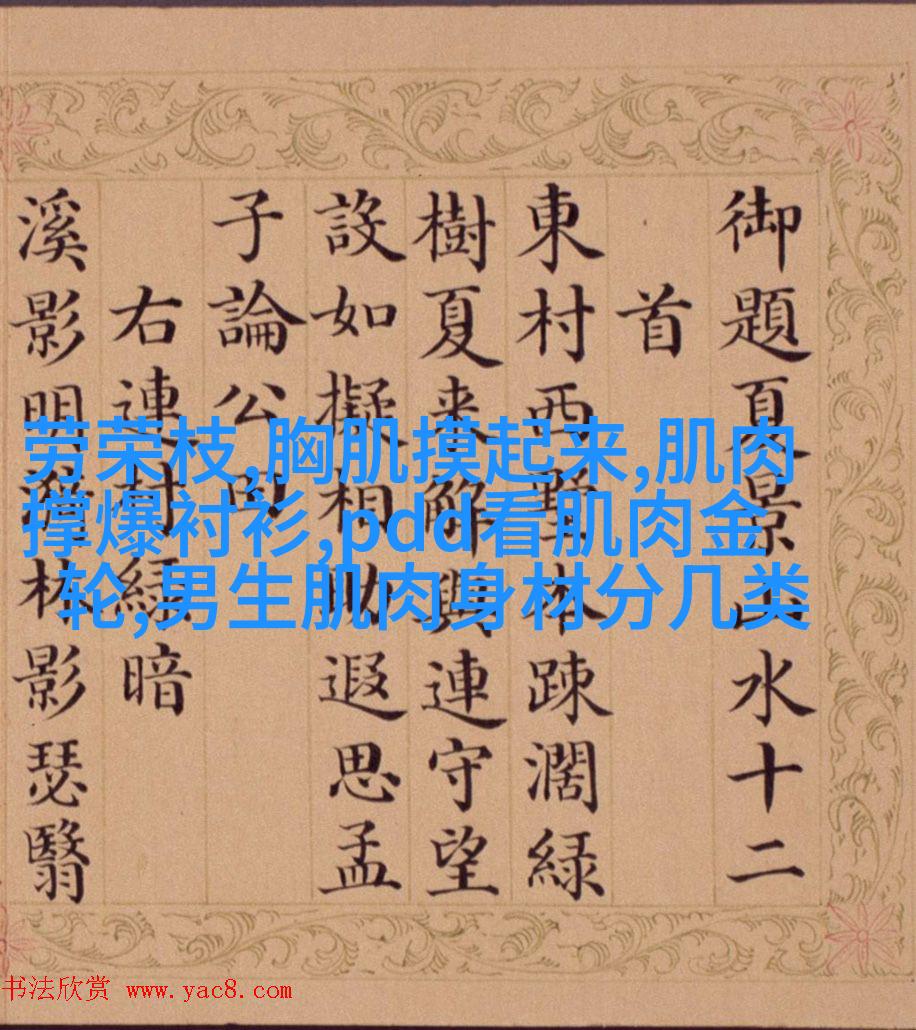 御題夏景山水十二
首
東村西墅本踈濶緑
樹夏来解與連守望
設如擬相助遐思孟
子論公田
右連村緑暗
溪影明漪林影瑟翳
劳荣枝,胸肌摸起来,肌肉
撑爆衬衫,pdd看肌肉金
轮,男生肌肉身材分几类
书法欣赏 www.yac8.com